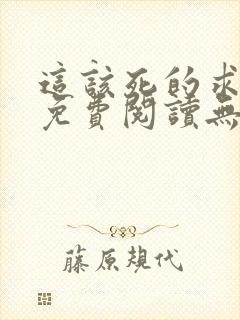 這該死的求
免費閱讀無
藤原規代